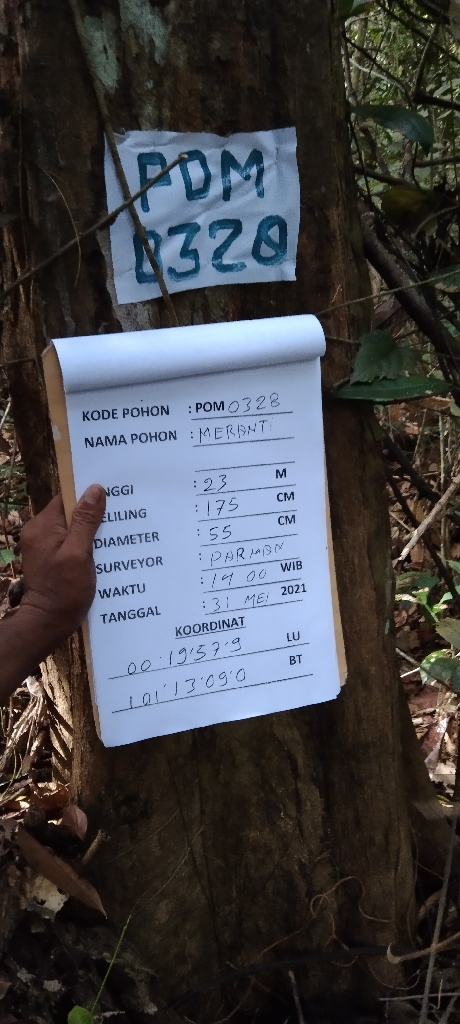 PDM
0328
KODE POHON : POM 0328
NAMA POHON : MERANTI
NGGI : 23 M
ELILING : 175 CM
DIAMETER : 55 CM
SURVEYOR : PARMAN
WAKTU : 14 00 WIB
TANGGAL : 31 MEI 2021
KOORDINAT
00·19'57·9 LU
101'13'09'0 BT